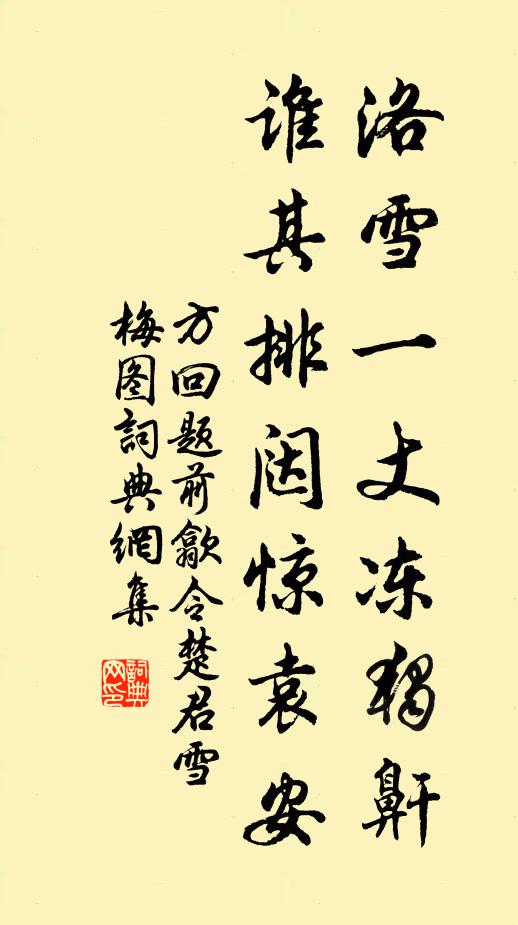 洛雪一丈冻独鼾
谁其排闼惊袁安
方回题前歙令楚君雪
梅图词典網集
詞典网印